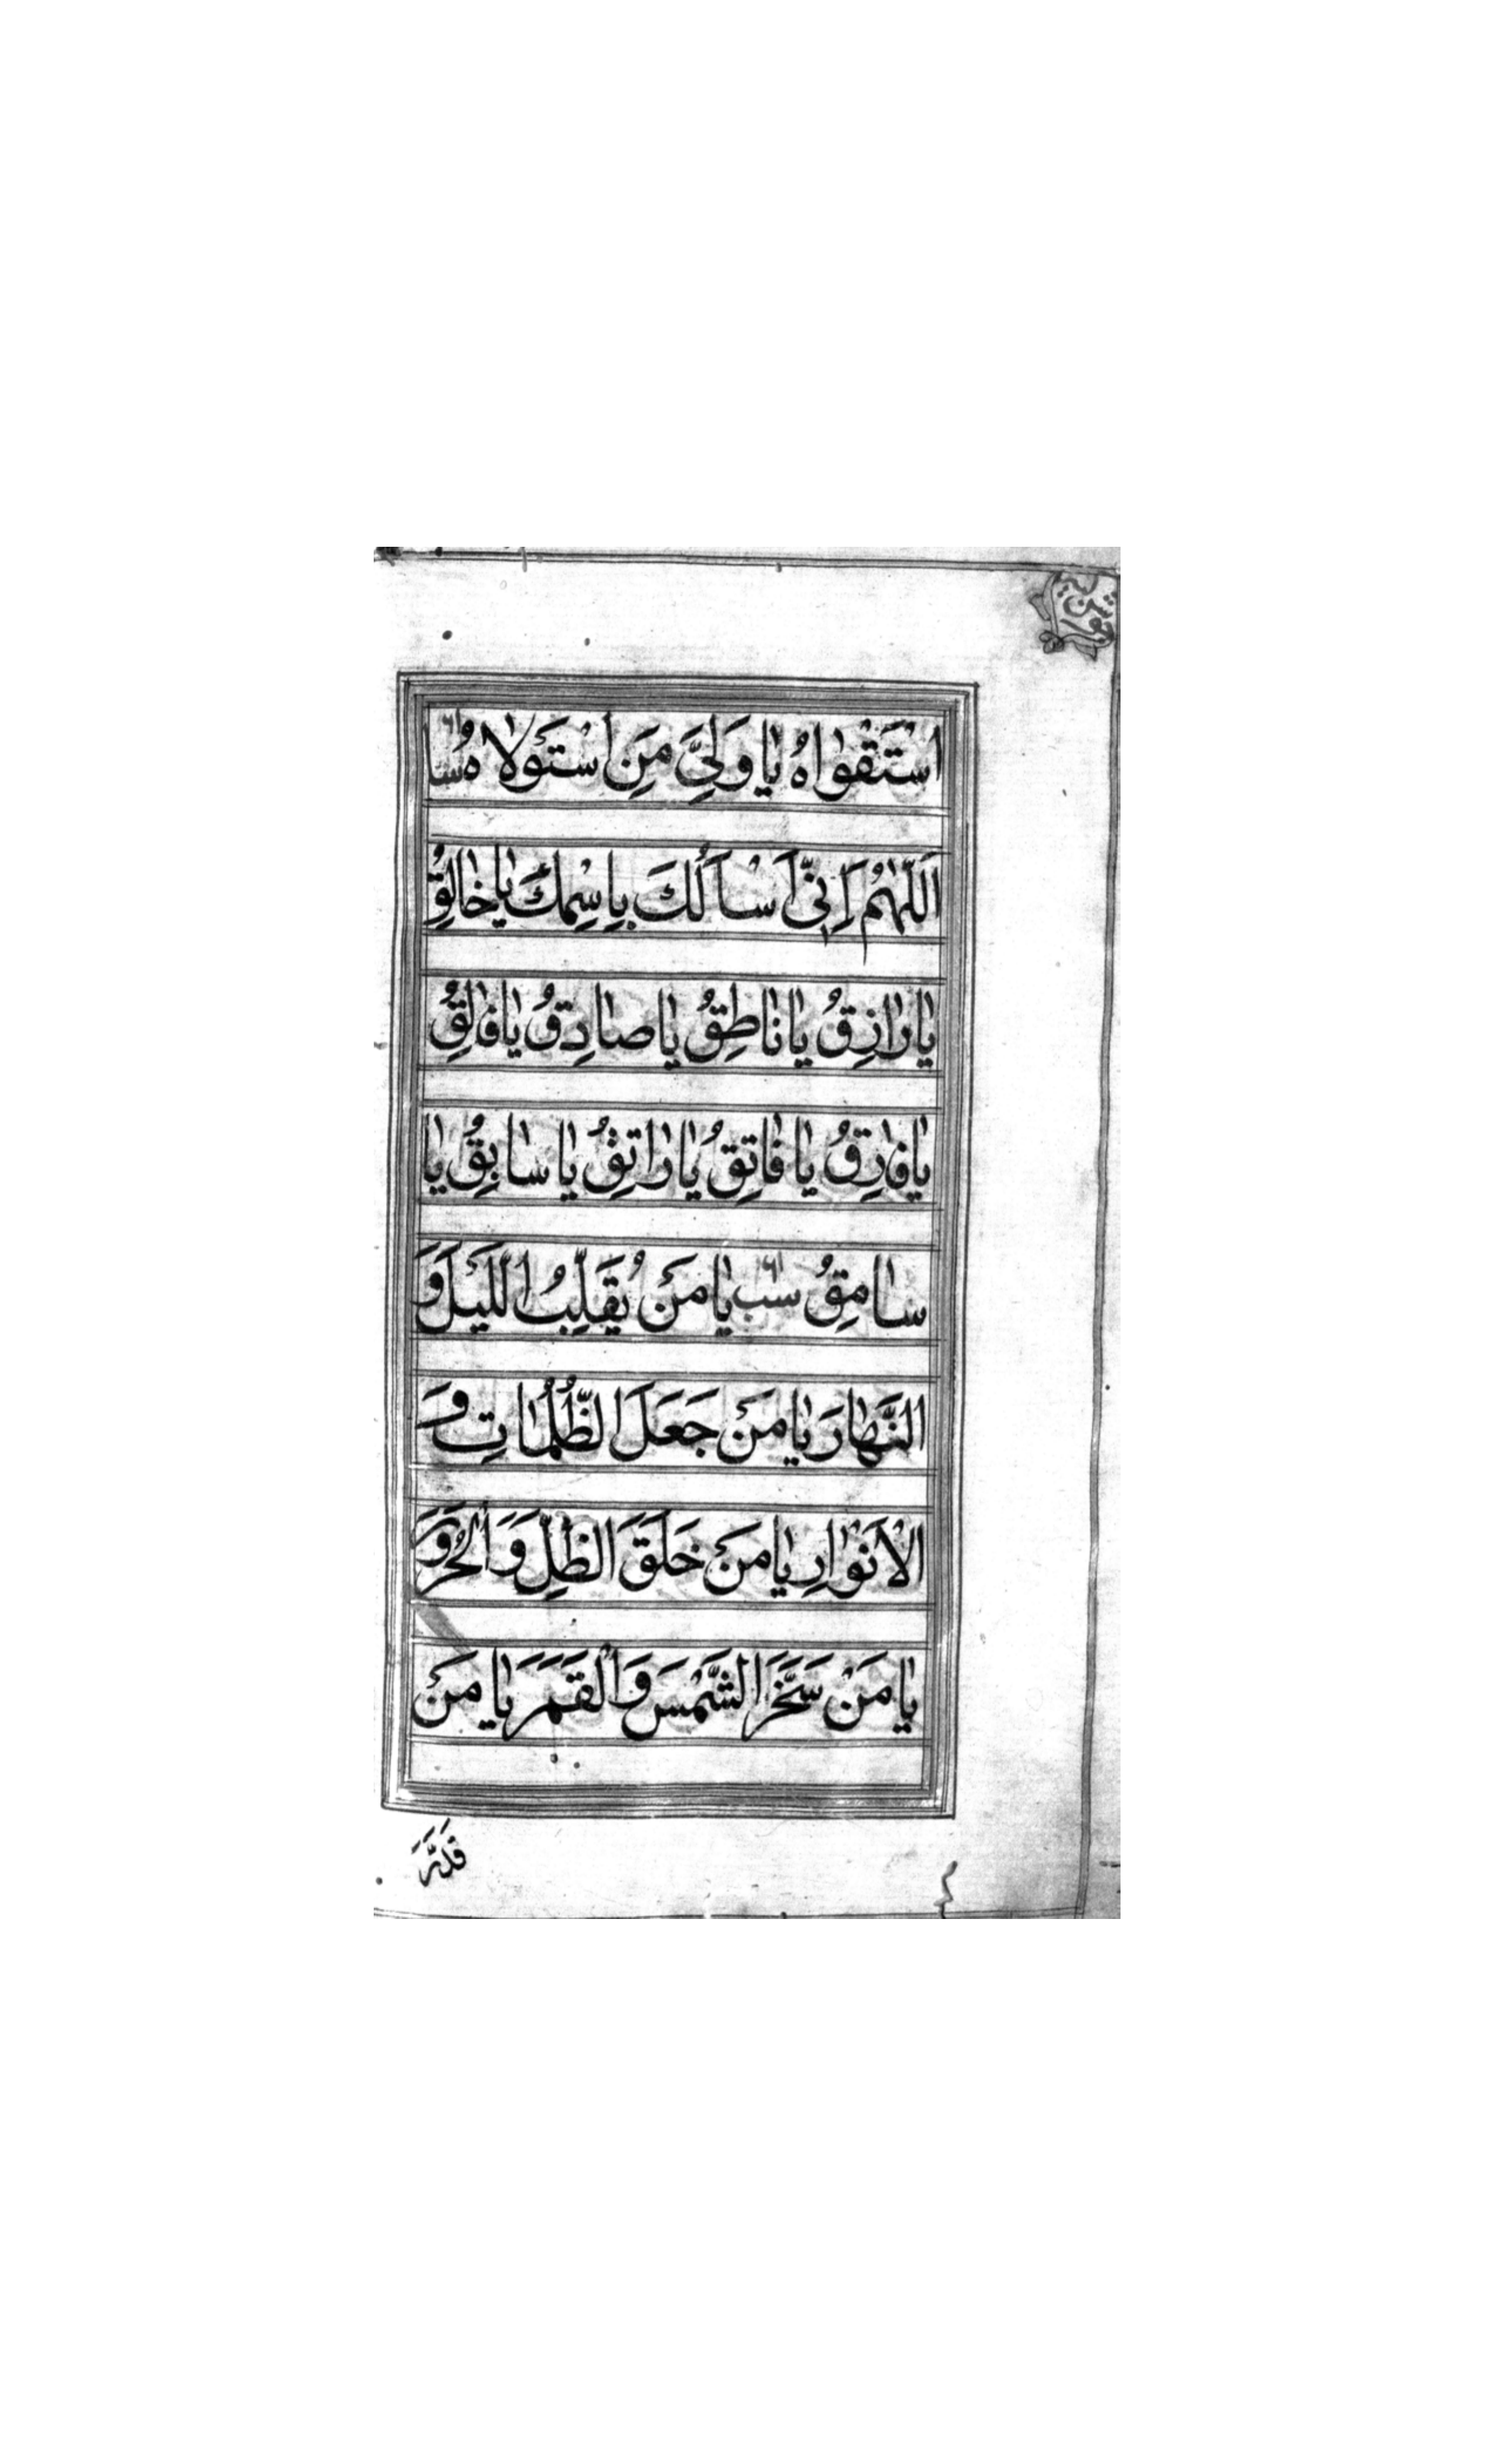 اسْتَقْواهُ يا وَلِيَّ مَنِ اسْتَوْلاهُ سا
اَللّهُمَّ اِنّي اَسْاَلُكَ بِاسْمِكَ يا خالِقُ
يا رازِقُ يا ناطِقُ يا صادِقُ يا فالِقُ
يا فارِقُ يا فاتِقُ يا راتِقُ يا سابِقُ يا
سامِقُ سب يا مَنْ يُقَلِّبُ اللَّيْلَ وَ
النَّهارَ يا مَنْ جَعَلَ الظُّلُماتِ وَ
الْاَنْوارِ يا مَنْ خَلَقَ الظِّلَّ وَالْحَرُورَ
يا مَنْ سَخَّرَ الشَّمْسَ وَالْقَمَرَ يا مَنْ
قَدَّرَ